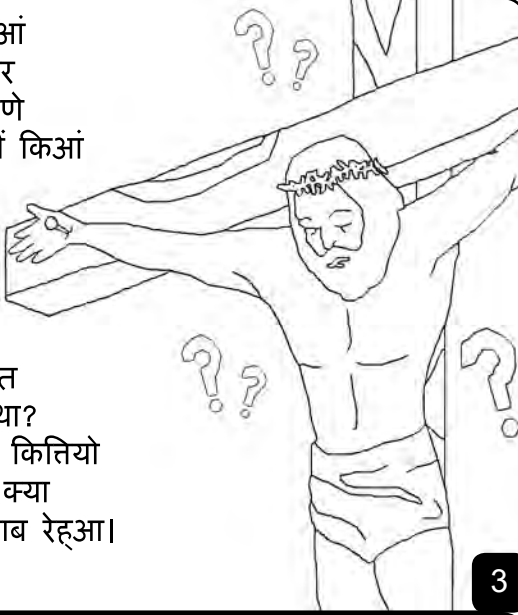 आं
र
णे
किआं
त
था?
कित्तियो
क्या
ाब रेह्आ।
3